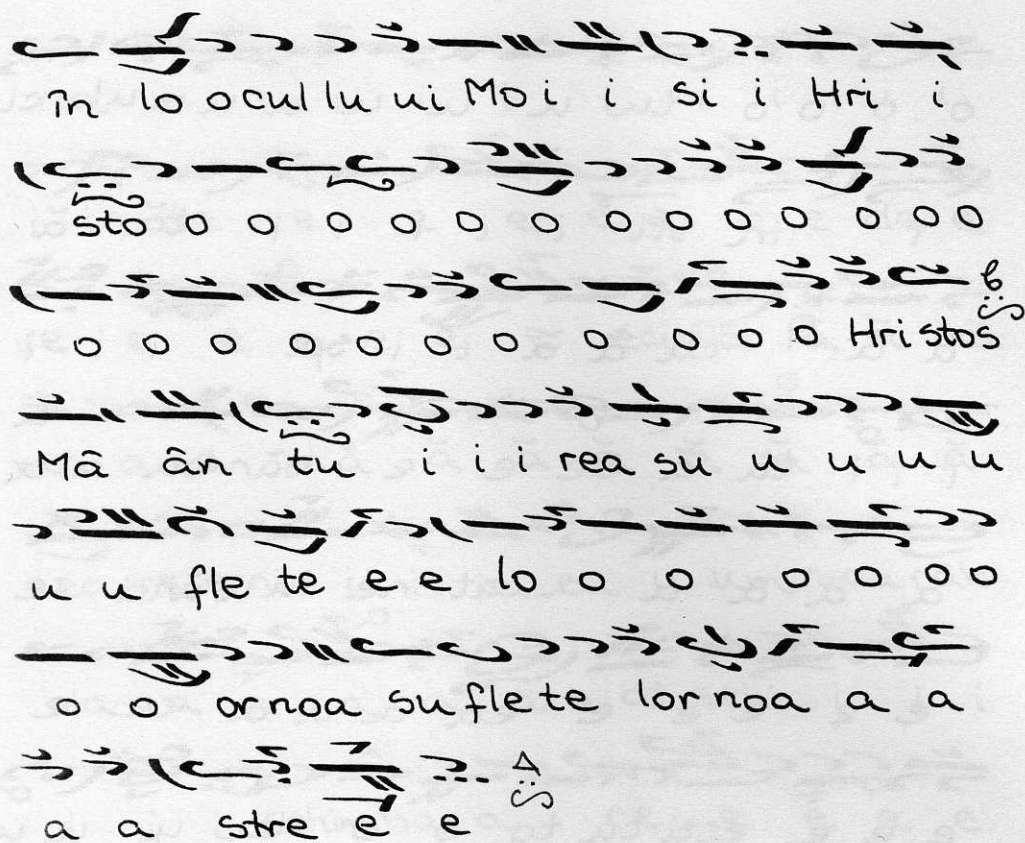 în lo ocul lu ui Moi i si i Hri i
sto o o o o o o o o o o o o o
o o o o o o o o o o o Hristos
Mâ ân tu i i i rea su u u u u
u u fle te e e lo o o o o o o
o o or noa su fle te lor noa a a
a a stre e e